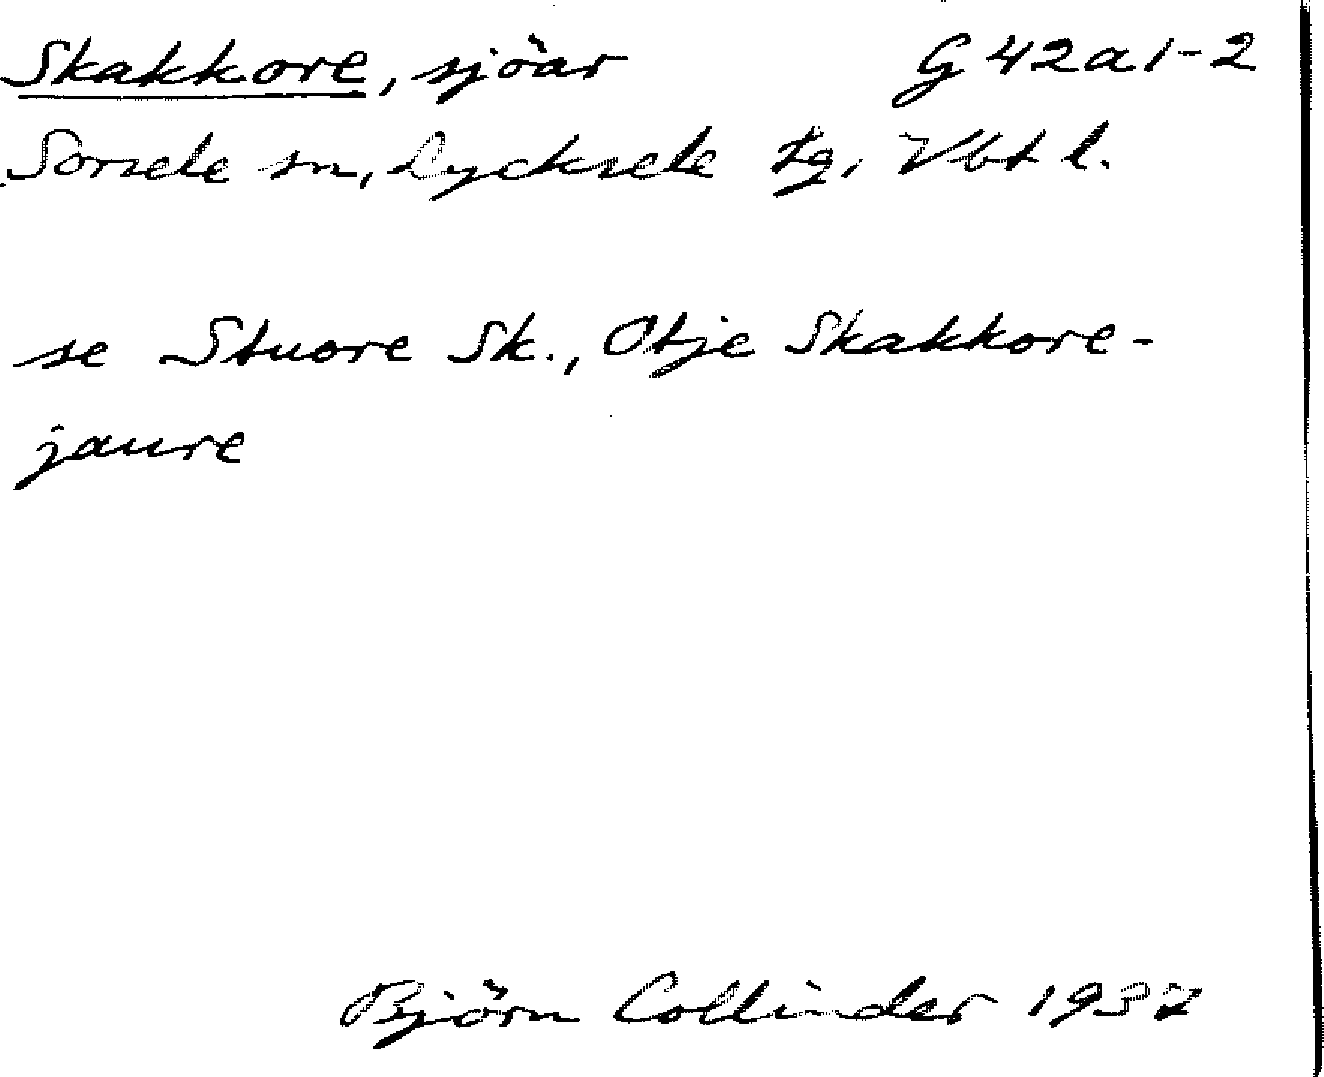 Skakkore, sjöar G 42a1-2
Sorsele sn, Lycksele lg. Vbt l.
se Stuore Sk., Otje Skakkore-
jaure
Björn Collinder 1937